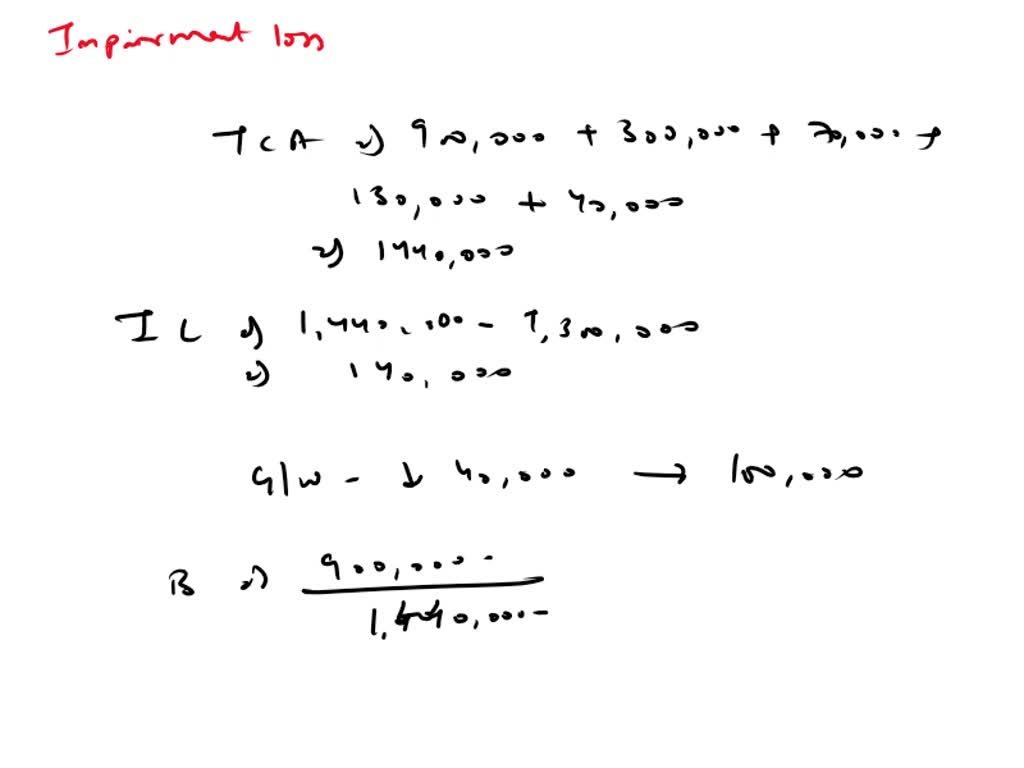 Impairment loss
TCA => 900,000 + 300,000 + 70,000 +
130,000 + 40,000
=> 1440,000
IL => 1,440,000 - 1,300,000
=> 140,000
G/W - ↓ 40,000 → 100,000
B => 900,000
1,440,000